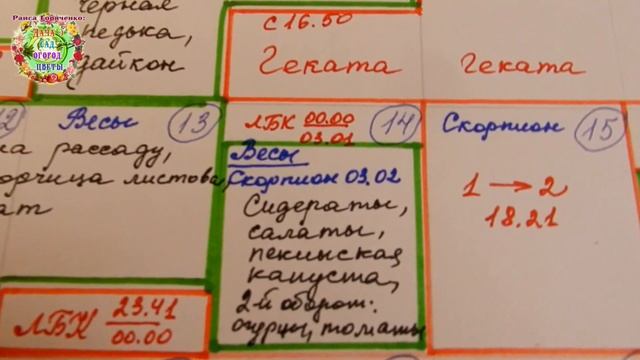 Раиса Горяченко:
ДАЧА
САД
ОГОРОД
ЦВЕТЫ
черная
редька,
дайкон
с 16.50
Геката
Геката
12
Весы
13
на рассаду,
горчица листова,
ЛБК 23.41
00.00
ЛБК 00.00
03.01
14
Весы
Скорпион 03.02
Сидераты,
салаты,
пекинская
капуста,
2-й оборот:
огурцы, томаты
Скорпион
15
1 → 2
18.21